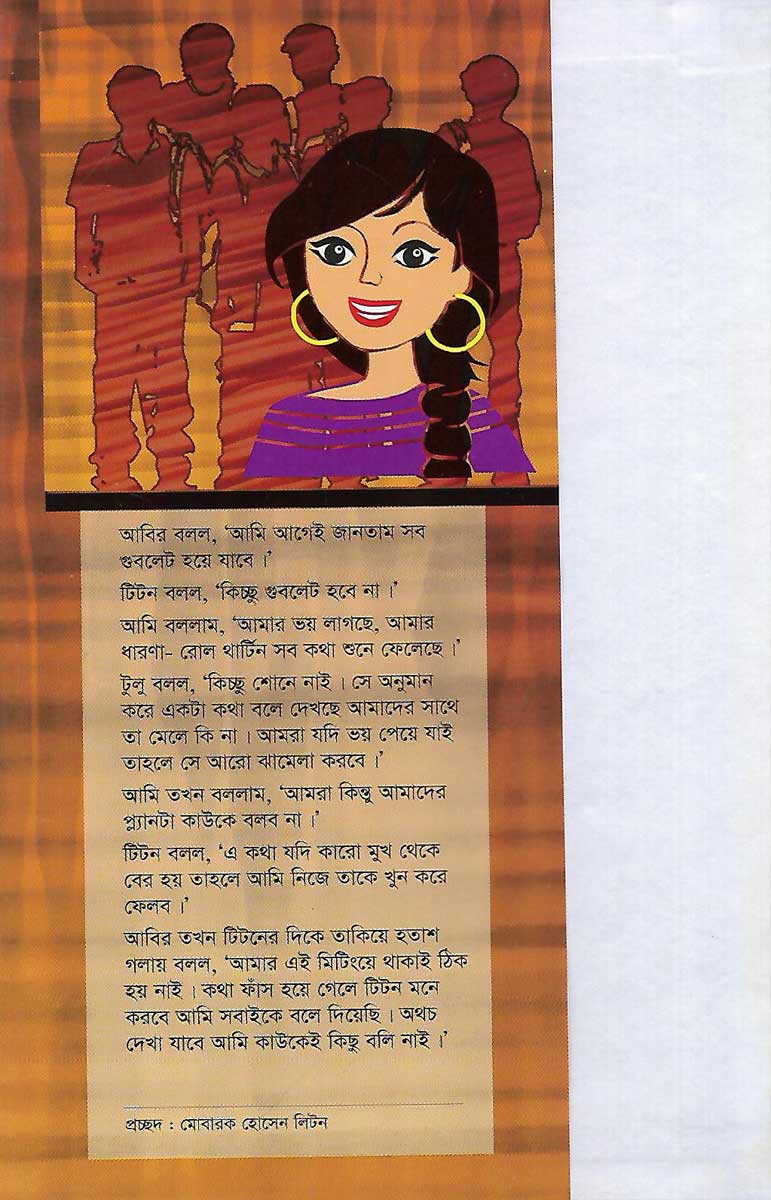 আবির বলল, ‘আমি আগেই জানতাম সব
গুবলেট হয়ে যাবে।’
টিটন বলল, ‘কিচ্ছু গুবলেট হবে না।’
আমি বললাম, ‘আমার ভয় লাগছে, আমার
ধারণা- রোল থার্টিন সব কথা শুনে ফেলেছে।’
টুলু বলল, ‘কিচ্ছু শোনে নাই। সে অনুমান
করে একটা কথা বলে দেখছে আমাদের সাথে
তা মেলে কি না। আমরা যদি ভয় পেয়ে যাই
তাহলে সে আরো ঝামেলা করবে।’
আমি তখন বললাম, ‘আমরা কিন্তু আমাদের
প্ল্যানটা কাউকে বলব না।’
টিটন বলল, ‘এ কথা যদি কারো মুখ থেকে
বের হয় তাহলে আমি নিজে তাকে খুন করে
ফেলব।’
আবির তখন টিটনের দিকে তাকিয়ে হতাশ
গলায় বলল, ‘আমার এই মিটিংয়ে থাকাই ঠিক
হয় নাই। কথা ফাঁস হয়ে গেলে টিটন মনে
করবে আমি সবাইকে বলে দিয়েছি। অথচ
দেখা যাবে আমি কাউকেই কিছু বলি নাই।’
প্রচ্ছদ : মোবারক হোসেন লিটন